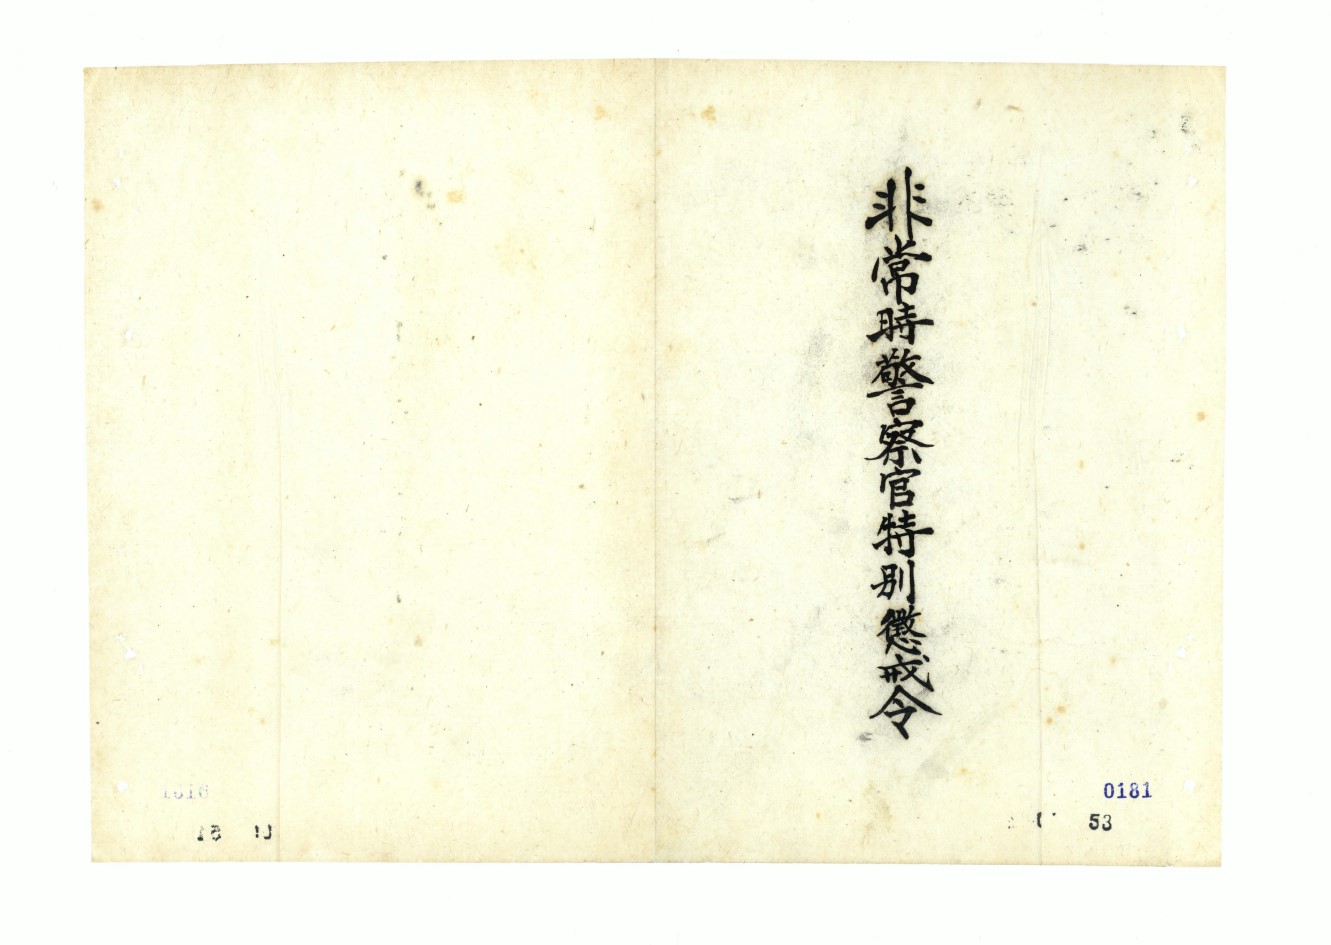 非常時警察官特別懲戒令
0181
53